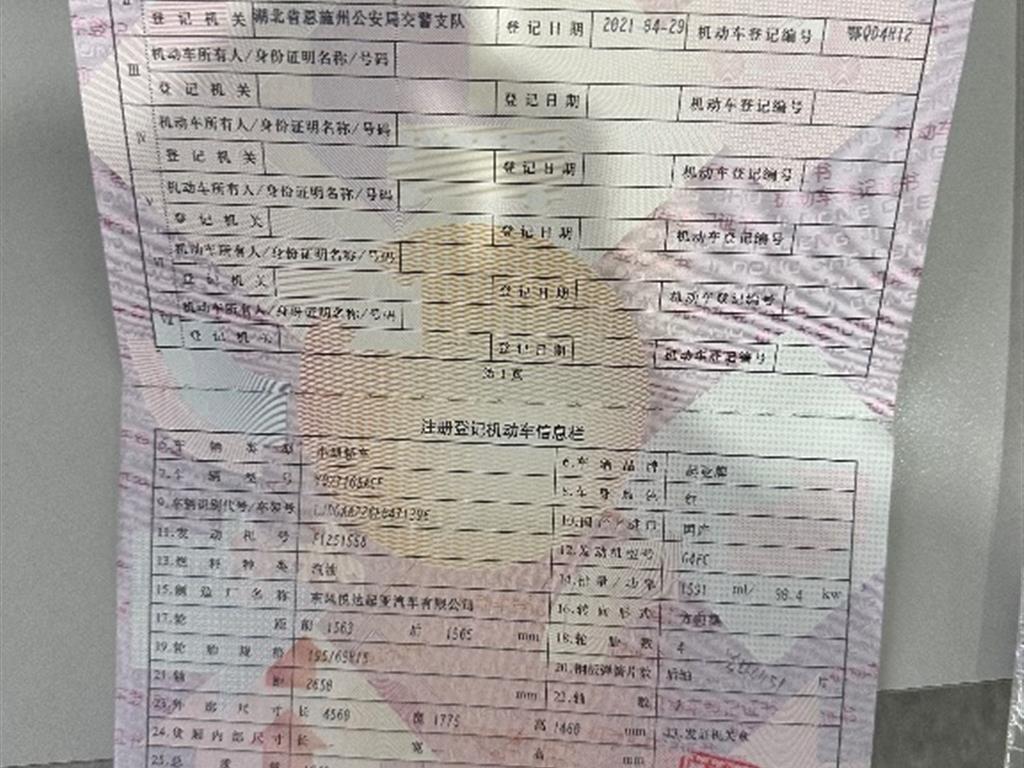 II
登记机关 湖北省恩施州公安局交警支队 登记日期 2021-04-29 机动车登记编号 鄂QD4H12
III 机动车所有人/身份证明名称/号码
登记机关 登记日期 机动车登记编号
IV 机动车所有人/身份证明名称/号码
登记机关 登记日期 机动车登记编号
V 机动车所有人/身份证明名称/号码
登记机关 登记日期 机动车登记编号
VI 机动车所有人/身份证明名称/号码
登记机关 登记日期 机动车登记编号
VII 机动车所有人/身份证明名称/号码
登记机关 登记日期 机动车登记编号
第1页
注册登记机动车信息栏
5.车辆类型 6.车辆品牌
7.车辆型号 8.车身颜色 红
9.车辆识别代号/车架号 10.国产/进口 国产
11.发动机号 12.发动机型号 G4FC
13.燃料种类 汽油 14.排量/功率 1591 ml/ 98.4 kw
15.制造厂名称 东风悦达起亚汽车有限公司 16.转向形式 方向盘
17.轮距 前 1563 后 1565 mm 18.轮胎数 4
19.轮胎规格 195/65R15 20.钢板弹簧片数 后轴 片
21.轴距 2650 mm 22.轴数
23.外廓尺寸 长 4560 宽 1775 高 1460 mm 33.发证机关章
24.货厢内部尺寸 长 宽 高 mm
25.总质量